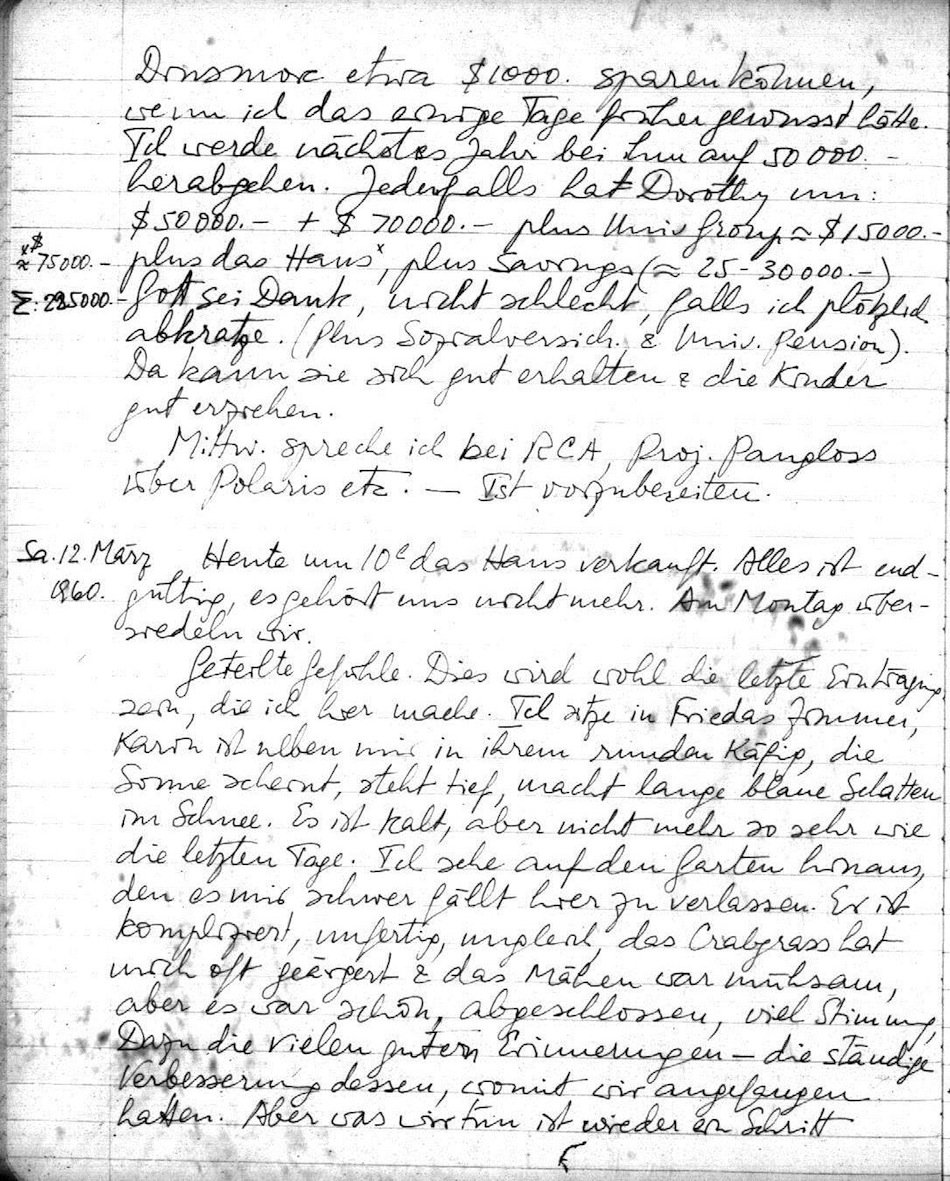 Dinsmore etwa $1000. sparen können,
wenn ich das einige Tage früher gewusst hätte.
Ich werde nächstes Jahr bei ihm auf 50 000.-
herabgehen. Jedenfalls hat Dorothy nun:
$50000.- + $ 70000.- plus Univ Group ≈ $15000.-
x $
≈ 75000.- plus das Haus x, plus Savings (≈ 25-30000.-)
Σ: 225000.- Gott sei Dank, nicht schlecht, falls ich plötzlich
abkratze. (Plus Sozialversich. & Univ. Pension).
Da kann sie sich gut erhalten & die Kinder
gut erziehen.
Mittw. spreche ich bei RCA, Proj. Pangloss
über Polaris etc. — Ist vorzubereiten.
Sa. 12. März Heute um 10h das Haus verkauft. Alles ist end-
1960. gültig, es gehört uns nicht mehr. Am Montag über-
siedeln wir.
Geteilte Gefühle. Dies wird wohl die letzte Eintragung
sein, die ich hier mache. Ich sitze in Friedas Zimmer,
Karin ist neben mir in ihrem runden Käfig, die
Sonne scheint, steht tief, macht lange blaue Schatten
im Schnee. Es ist kalt, aber nicht mehr so sehr wie
die letzten Tage. Ich sehe auf den Garten hinaus,
den es mir schwer fällt hier zu verlassen. Er ist
kompliziert, unfertig, ungleich, das Crabgrass hat
mich oft geärgert & das Mähen war mühsam,
aber es war schön, abgeschlossen, viel Stimmung,
Dazu die vielen guten Erinnerungen — die ständige
Verbesserung dessen, womit wir angefangen
hatten. Aber was wir tun ist wieder ein Schritt